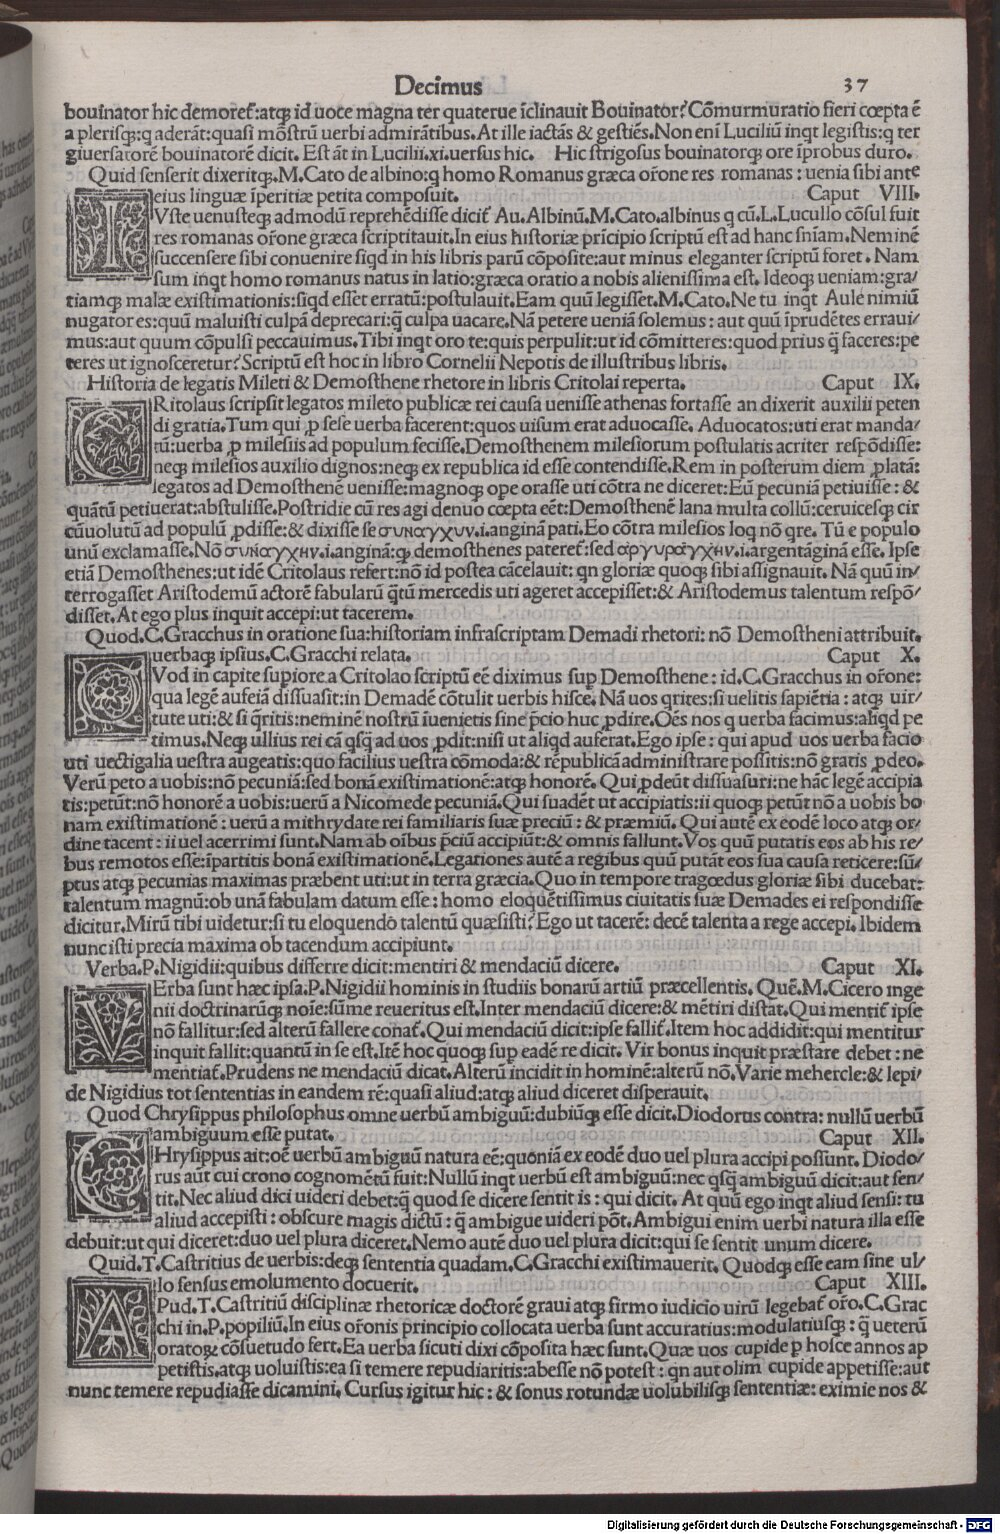 Decimus 37
bouinator hic demoret᷑:atqꝫ id uoce magna ter quaterue ĩclinauit Bouinator? Cõmurmuratio fieri cœpta ẽ
a plerisqꝫ:q aderãt:quasi mõstrũ uerbi admirãtibus. At ille iactãs & gestiẽs. Non eni Luciliũ inqt legistis:q ter
giuersatorẽ bouinatorẽ dicit. Est ãt in Lucilii.xi.uersus hic. Hic strigosus bouinatorqꝫ ore ĩprobus duro.
Quid senserit dixeritqꝫ. M. Cato de albino:q homo Romanus græca oŕone res romanas : uenia sibi ante
eius linguæ ĩperitiæ petita composuit. Caput VIII.
IVste uenusteqꝫ admodũ reprehẽdisse dicit᷑ Au. Albinũ. M. Cato. albinus q cũ. L. Lucullo cõsul fuit
res romanas oŕone græca scriptitauit. In eius historiæ prĩcipio scriptũ est ad hanc sñiam. Neminẽ
succensere sibi conuenire siqd in his libris parũ cõposite:aut minus eleganter scriptũ foret. Nam
sum inqt homo romanus natus in latio:græca oratio a nobis alienissima est. Ideoqꝫ ueniam:gra/
tiamqꝫ malæ existimationis:siqd esset erratũ:postulauit. Eam quũ legisset. M. Cato. Ne tu inqt Aule nimiũ
nugator es:quũ maluisti culpã deprecari:q̃ culpa uacare. Nã petere ueniã solemus : aut quũ ĩprudẽtes erraui/
mus:aut quum cõpulsi peccauimus. Tibi inqt oro te:quis perpulit:ut id cõmitteres:quod prius q̃ faceres:pe
teres ut ignosceretur? Scriptũ est hoc in libro Cornelii Nepotis de illustribus libris.
Historia de legatis Mileti & Demosthene rhetore in libris Critolai reperta. Caput IX.
CRitolaus scripsit legatos mileto publicæ rei causa uenisse athenas fortasse an dixerit auxilii peten
di gratia. Tum qui ꝓ sese uerba facerent:quos uisum erat aduocasse. Aduocatos:uti erat manda/
tũ:uerba ꝓ milesiis ad populum fecisse. Demosthenem milesiorum postulatis acriter respõdisse:
neqꝫ milesios auxilio dignos:neqꝫ ex republica id esse contendisse. Rem in posterum diem ꝓlatã:
legatos ad Demosthenẽ uenisse:magnoqꝫ ope orasse uti cõtra ne diceret: Eũ pecuniã petiuisse : &
quãtũ petiuerat:abstulisse. Postridie cũ res agi denuo cœpta eẽt: Demosthenẽ lana multa collũ:ceruicesqꝫ cir
cũuolutũ ad populũ ꝓdisse:& dixisse se συναγχυν.i.anginã pati. Eo cõtra milesios loq nõ qre. Tũ e populo
unũ exclamasse. Nõ συναγχην.i.anginã:qꝫ demosthenes pateret᷑:sed αργυραγχην.i.argentãginã esse. Ipse
etiã Demosthenes:ut idẽ Critolaus refert:nõ id postea cãcelauit: qn gloriæ quoqꝫ sibi assignauit. Nã quũ in/
terrogasset Aristodemũ actorẽ fabularũ q̃tũ mercedis uti ageret accepisset:& Aristodemus talentum respõ/
disset. At ego plus inquit accepi:ut tacerem.
Quod. C. Gracchus in oratione sua:historiam infrascriptam Demadi rhetori: nõ Demostheni attribuit.
uerbaqꝫ ipsius. C. Gracchi relata. Caput X.
QVod in capite supiore a Critolao scriptũ eẽ diximus sup Demosthene : id. C. Gracchus in oŕone:
qua legẽ aufeiã dissuasit:in Demadẽ cõtulit uerbis hisce. Nã uos qrites:si uelitis sapiẽtia : atqꝫ uir/
tute uti:& si q̃ritis:neminẽ nostrũ ĩuenietis sine p̃cio huc ꝓdire. Oẽs nos q uerba facimus:aliqd pe
timus. Neqꝫ ullius rei cã qsq̃ ad uos ꝓdit:nisi ut aliqd auferat. Ego ipse : qui apud uos uerba facio
uti uectigalia uestra augeatis:quo facilius uestra cõmoda:& rẽpublicã administrare possitis:nõ gratis ꝓdeo.
Verũ peto a uobis:nõ pecuniã:sed bonã existimationẽ:atqꝫ honorẽ. Qui ꝓdeũt dissuasuri:ne hãc legẽ accipia
tis:petũt:nõ honorẽ a uobis:uerũ a Nicomede pecuniã. Qui suadẽt ut accipiatis:ii quoqꝫ petũt nõ a uobis bo
nam existimationẽ : uerũ a mithrydate rei familiaris suæ preciũ : & præmiũ. Qui autẽ ex eodẽ loco atqꝫ or/
dine tacent : ii uel acerrimi sunt. Nam ab oibus p̃ciũ accipiũt:& omnis fallunt. Vos quũ putatis eos ab his re/
bus remotos esse:ipartitis bonã existimationẽ. Legationes autẽ a regibus quũ putãt eos sua causa reticere:sũ/
ptus atqꝫ pecunias maximas præbent uti:ut in terra græcia. Quo in tempore tragœdus gloriæ sibi ducebat:
talentum magnũ:ob unã fabulam datum esse : homo eloquẽtissimus ciuitatis suæ Demades ei respondisse
dicitur. Mirũ tibi uidetur:si tu eloquendo talentũ quæsisti? Ego ut tacerẽ: decẽ talenta a rege accepi. Ibidem
nunc isti precia maxima ob tacendum accipiunt.
Verba. P. Nigidii:quibus differre dicit:mentiri & mendaciũ dicere. Caput XI.
VErba sunt hæc ipsa. P. Nigidii hominis in studiis bonarũ artiũ præcellentis. Quẽ. M. Cicero inge
nii doctrinarũqꝫ noĩe:sũme reueritus est. Inter mendaciũ dicere:& mẽtiri distat. Qui mentit᷑ ipse
nõ fallitur:sed alterũ fallere conat᷑. Qui mendaciũ dicit:ipse fallit᷑. Item hoc addidit:qui mentitur
inquit fallit:quantũ in se est. Itẽ hoc quoqꝫ sup eadẽ re dicit. Vir bonus inquit præstare debet : ne
mentiat᷑. Prudens ne mendaciũ dicat. Alterũ incidit in hominẽ:alterũ nõ. Varie mehercle:& lepi/
de Nigidius tot sententias in eandem rẽ:quasi aliud:atqꝫ aliud diceret disperauit.
Quod Chrysippus philosophus omne uerbũ ambiguũ:dubiũqꝫ esse dicit. Diodorus contra: nullũ uerbũ
ambiguum esse putat. Caput XII.
CHrysippus ait:oẽ uerbũ ambiguũ natura eẽ:quoniã ex eodẽ duo uel plura accipi possunt. Diodo/
rus aut cui crono cognomẽtũ fuit: Nullũ inqt uerbũ est ambiguũ:nec qsq̃ ambiguũ dicit:aut sen/
tit. Nec aliud dici uideri debet:q̃ quod se dicere sentit is : qui dicit. At quũ ego inqt aliud sensi: tu
aliud accepisti : obscure magis dictũ : q̃ ambigue uideri põt. Ambigui enim uerbi natura illa esse
debuit:ut qui diceret:duo uel plura diceret. Nemo autẽ duo uel plura dicit:qui se sentit unum dicere.
Quid. T. Castritius de uerbis:deqꝫ sententia quadam. C. Gracchi existimauerit. Quodqꝫ esse eam sine ul/
lo sensus emolumento docuerit. Caput XIII.
APud. T. Castritiũ disciplinæ rhetoricæ doctorẽ graui atqꝫ firmo iudicio uirũ legebat᷑ oŕo. C. Grac
chi in. P. popiliũ. In eius oŕonis principio collocata uerba sunt accuratius:modulatiusqꝫ : q̃ ueterũ
oratoꝝ cõsuetudo fert. Ea uerba sicuti dixi cõposita hæc sunt. Quæ uos cupide p hosce annos ap
petistis.atqꝫ uoluistis:ea si temere repudiaritis:abesse nõ potest : qn aut olim cupide appetisse:aut
nunc temere repudiasse dicamini. Cursus igitur hic : & sonus rotundæ uolubilisqꝫ sententiæ: eximie nos &
Digitalisierung gefördert durch die Deutsche Forschungsgemeinschaft - DFG